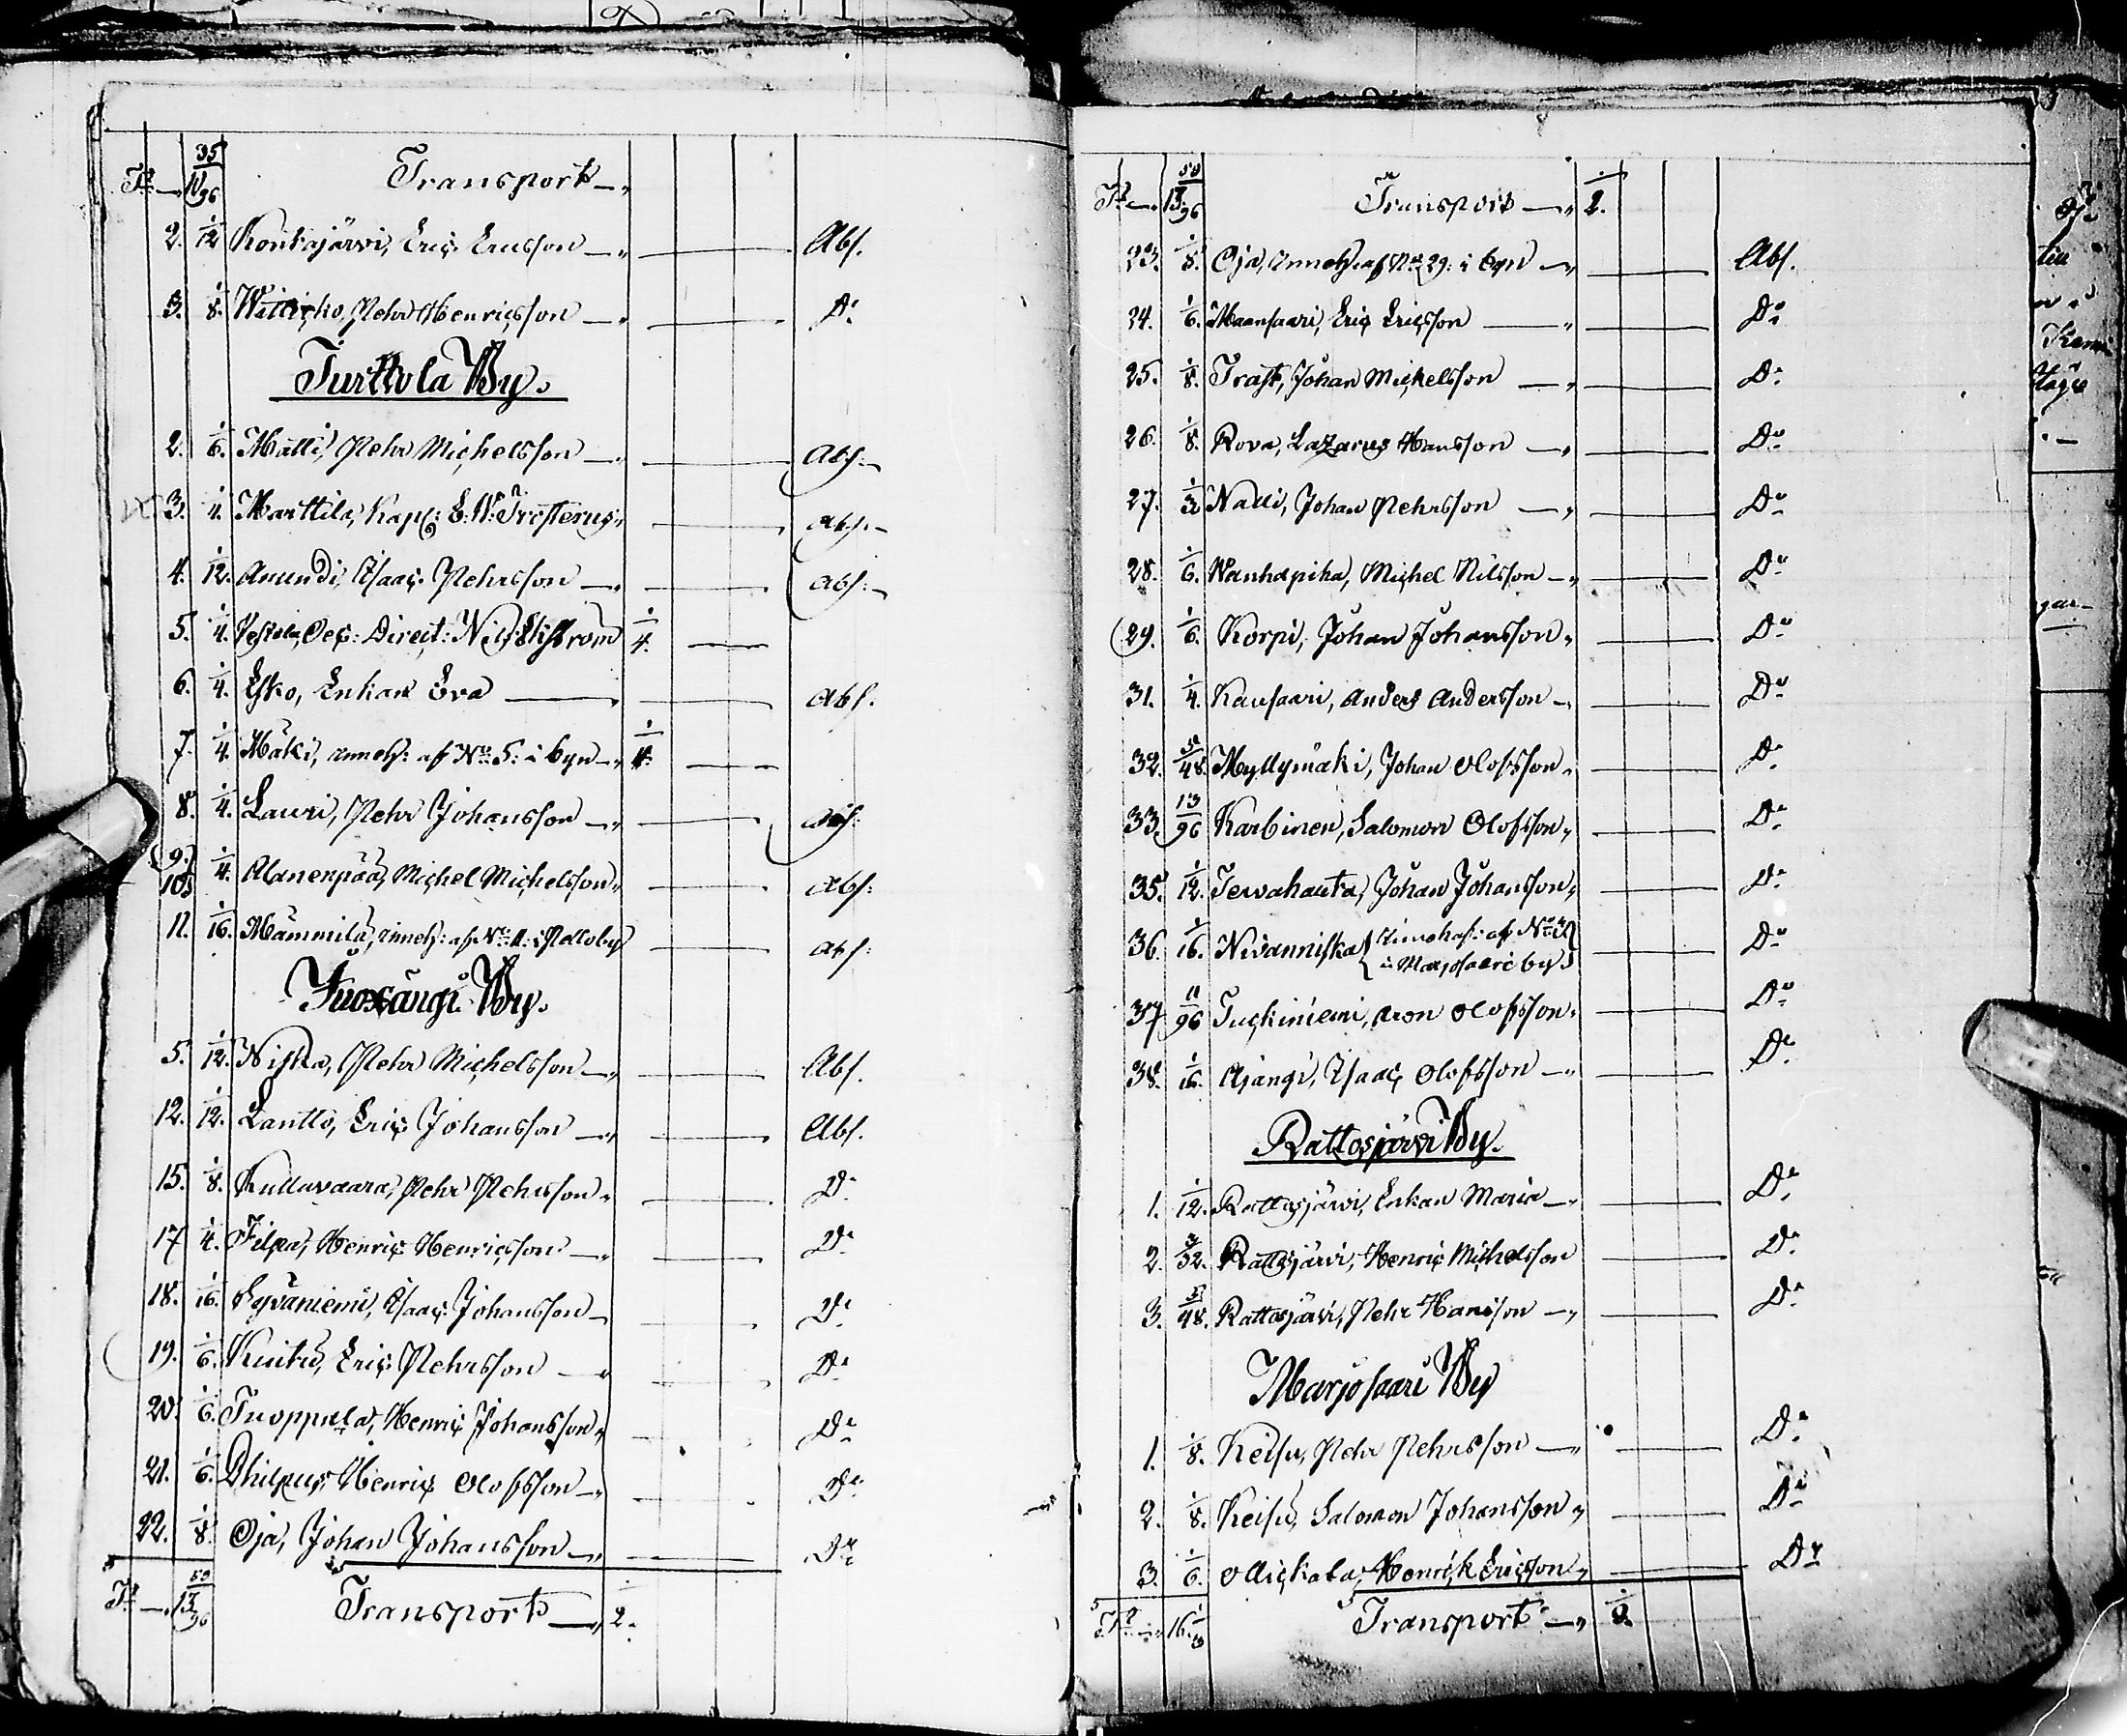 Tr — 10 35/96 Transport — "
2. 1/12 Konkajärvi, Eric Ericsson — " — Abs.
3. 1/8. Witticko, Pehr Henricsson — " — Do
Turttola By.
2. 1/6. Matti, Pehr Michelsson — " — Abs: —
3. 1/4. Marttila, Kapl: E. W: Frosterus " — Abs: —
4. 1/12. Anundi, Isaac Pehrsson — " — Abs: —
5. 1/4. Oec: Direct: Nils Ekström 1/4. —
6. 1/4. Esko, Enkan Eva — " — Abs.
7. 1/4. Mäki, inneh: af No 5: i byn — " 1/4. —
8. 1/4. Lauri, Pehr Johansson — " — Abs:
9. 10. 1/4. Alanenpää, Michel Michelsson " — Abs:
11. 1/16. Mämmilä, inneh: af No 11: i Pello by — Abs:
Juoxängi By.
5. 1/12. Niska, Pehr Michelsson — " — Abs.
12. 1/12. Lantto, Eric Johansson — " — Abs.
15. 1/8. Kullavaara, Pehr Pehrsson " — Do
17 1/4. Filpa, Henric Henricsson — " — Do
18. 1/16. Syväniemi, Isaac Johansson — Do
19. 1/6. Kuitu, Eric Pehrsson — " — Do
20. 1/6. Tuoppula, Henric Johansson " — Do
21. 1/6. Philpus, Henric Olofsson — " — Do
22. 1/8. Oja, Johan Johansson — " — Do
Tr — " 13 59/96 Transport — " 1/2.
Tr — " 13 59/96 Transport — " 1/2.
23. 1/8. Oja, inneh. af No 29: i byn — " — Abs.
24. 1/6. Maansaari, Eric Ericsson — " — Do
25. 1/8. Trast, Johan Mickelsson — " — Do
26. 1/8. Rova, Lazarus Hansson — " — Do
27. 1/3 Nalli, Johan Pehrsson — " — Do
28. 1/6. Wanhapiha, Michel Nilsson — " — Do
29. 1/6. Korpi, Johan Johansson " — Do
31. 1/4. Kausaari, Anders Andersson — " — Do
32. 5/48. Myllymäki, Johan Olofsson " — Do
33. 13/96 Karbinen, Salomon Olofsson " — Do
35. 1/12. Tervahauta, Johan Johansson " — Do
36. 1/16. Nivanniska { Innehaf: af No 3 — Do
i Marjosaari by }
37 11/96 Tuckiniemi, Aron Olofsson " — Do
38. 1/16. Ajangi, Isaac Olofsson — " — Do
Rattosjärvi By.
1. 1/12. Rattosjärvi, Enkan Maria — " — Do
2. 3/32. Rattosjärvi, Henric Michelsson — Do
3. 5/48. Rattosjärvi, Pehr Hansson — " — Do
Marjosaari By
1. 1/8. Keisu, Pehr Pehrsson — " — Do
2. 1/8. Keisu, Salomon Johansson " — Do
3. 1/6. Ollickala, Henrik Ericsson " — Do
Tr — " 16. Transport — " 1/2.